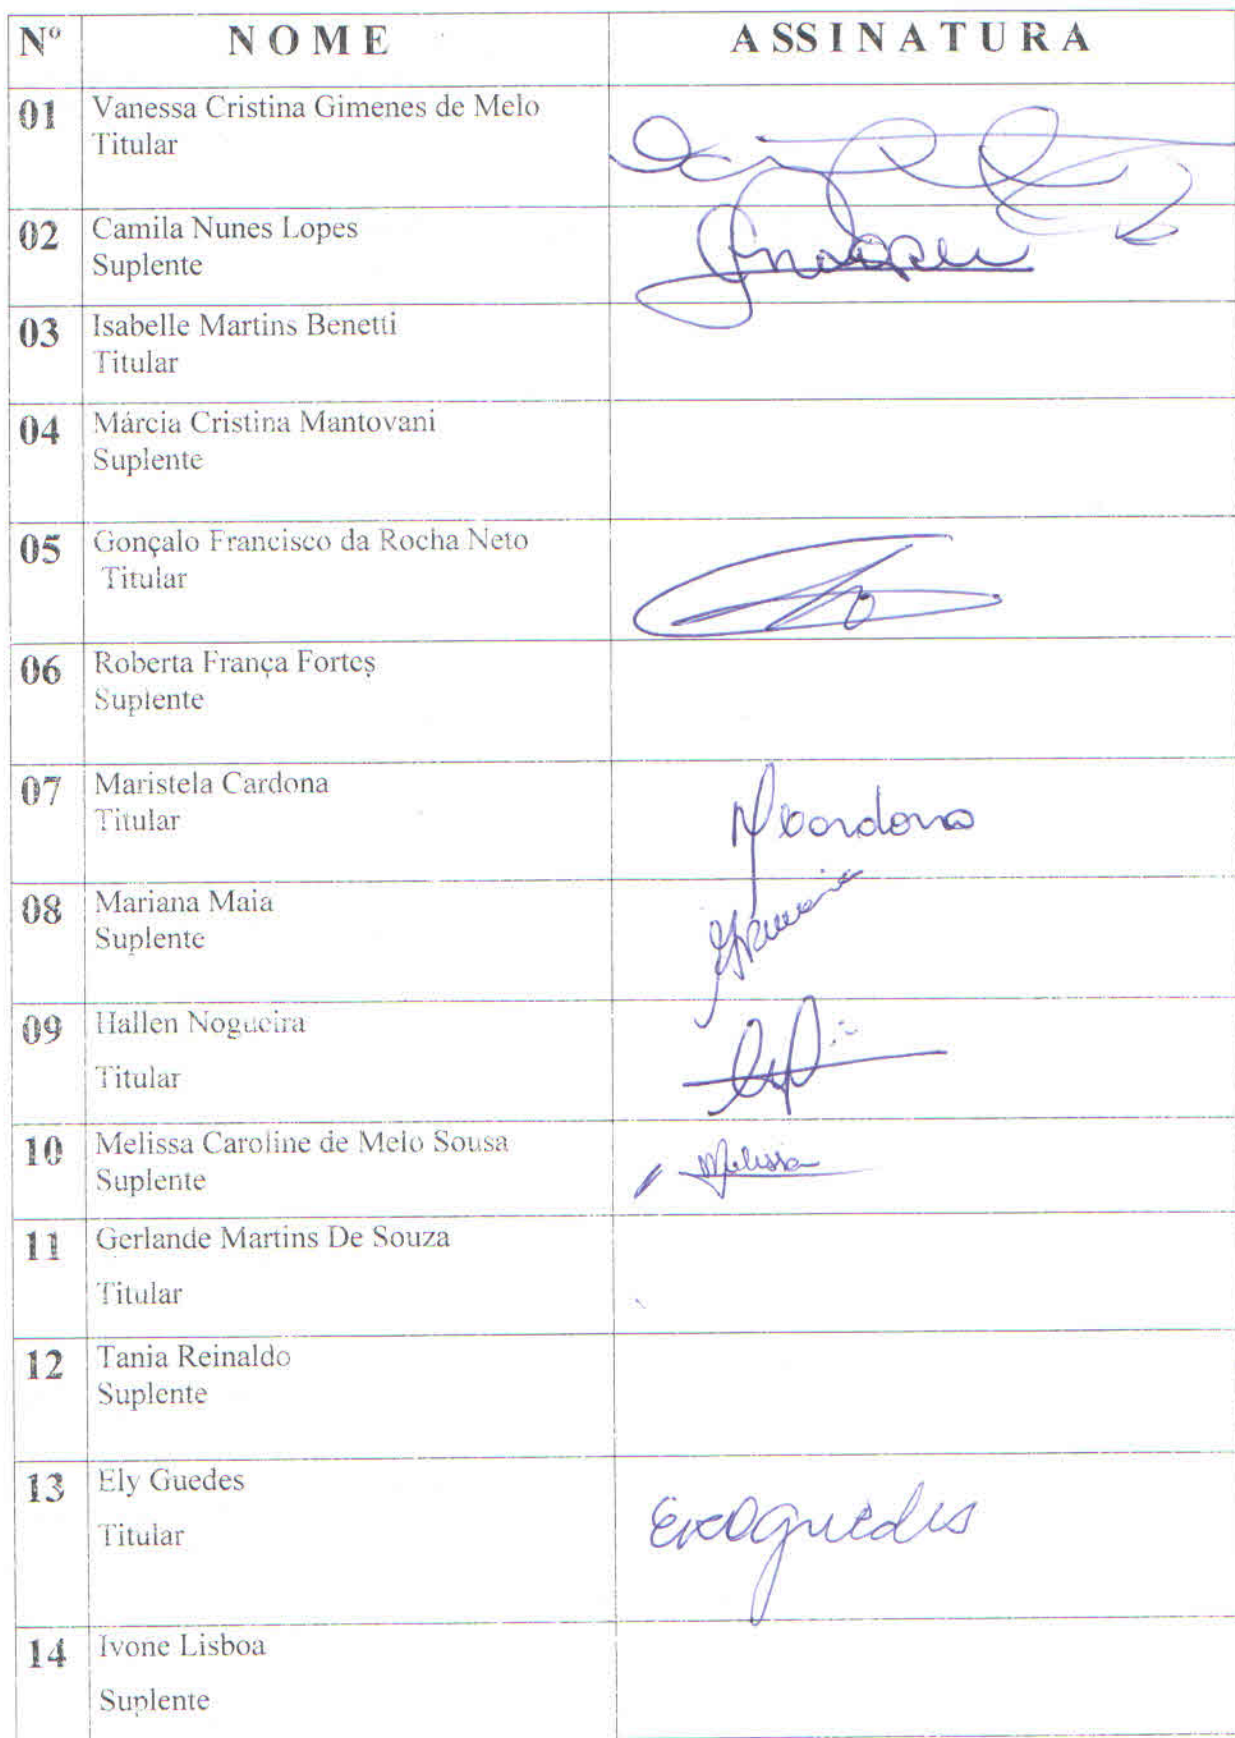 Nº NOME ASSINATURA
01 Vanessa Cristina Gimenes de Melo
Titular
02 Camila Nunes Lopes
Suplente
03 Isabelle Martins Benetti
Titular
04 Márcia Cristina Mantovani
Suplente
05 Gonçalo Francisco da Rocha Neto
Titular
06 Roberta França Fortes
Suplente
07 Maristela Cardona
Titular
08 Mariana Maia
Suplente
09 Hallen Nogueira
Titular
10 Melissa Caroline de Melo Sousa Melissa
Suplente
11 Gerlande Martins De Souza
Titular
12 Tania Reinaldo
Suplente
13 Ely Guedes
Titular
14 Ivone Lisboa
Suplente